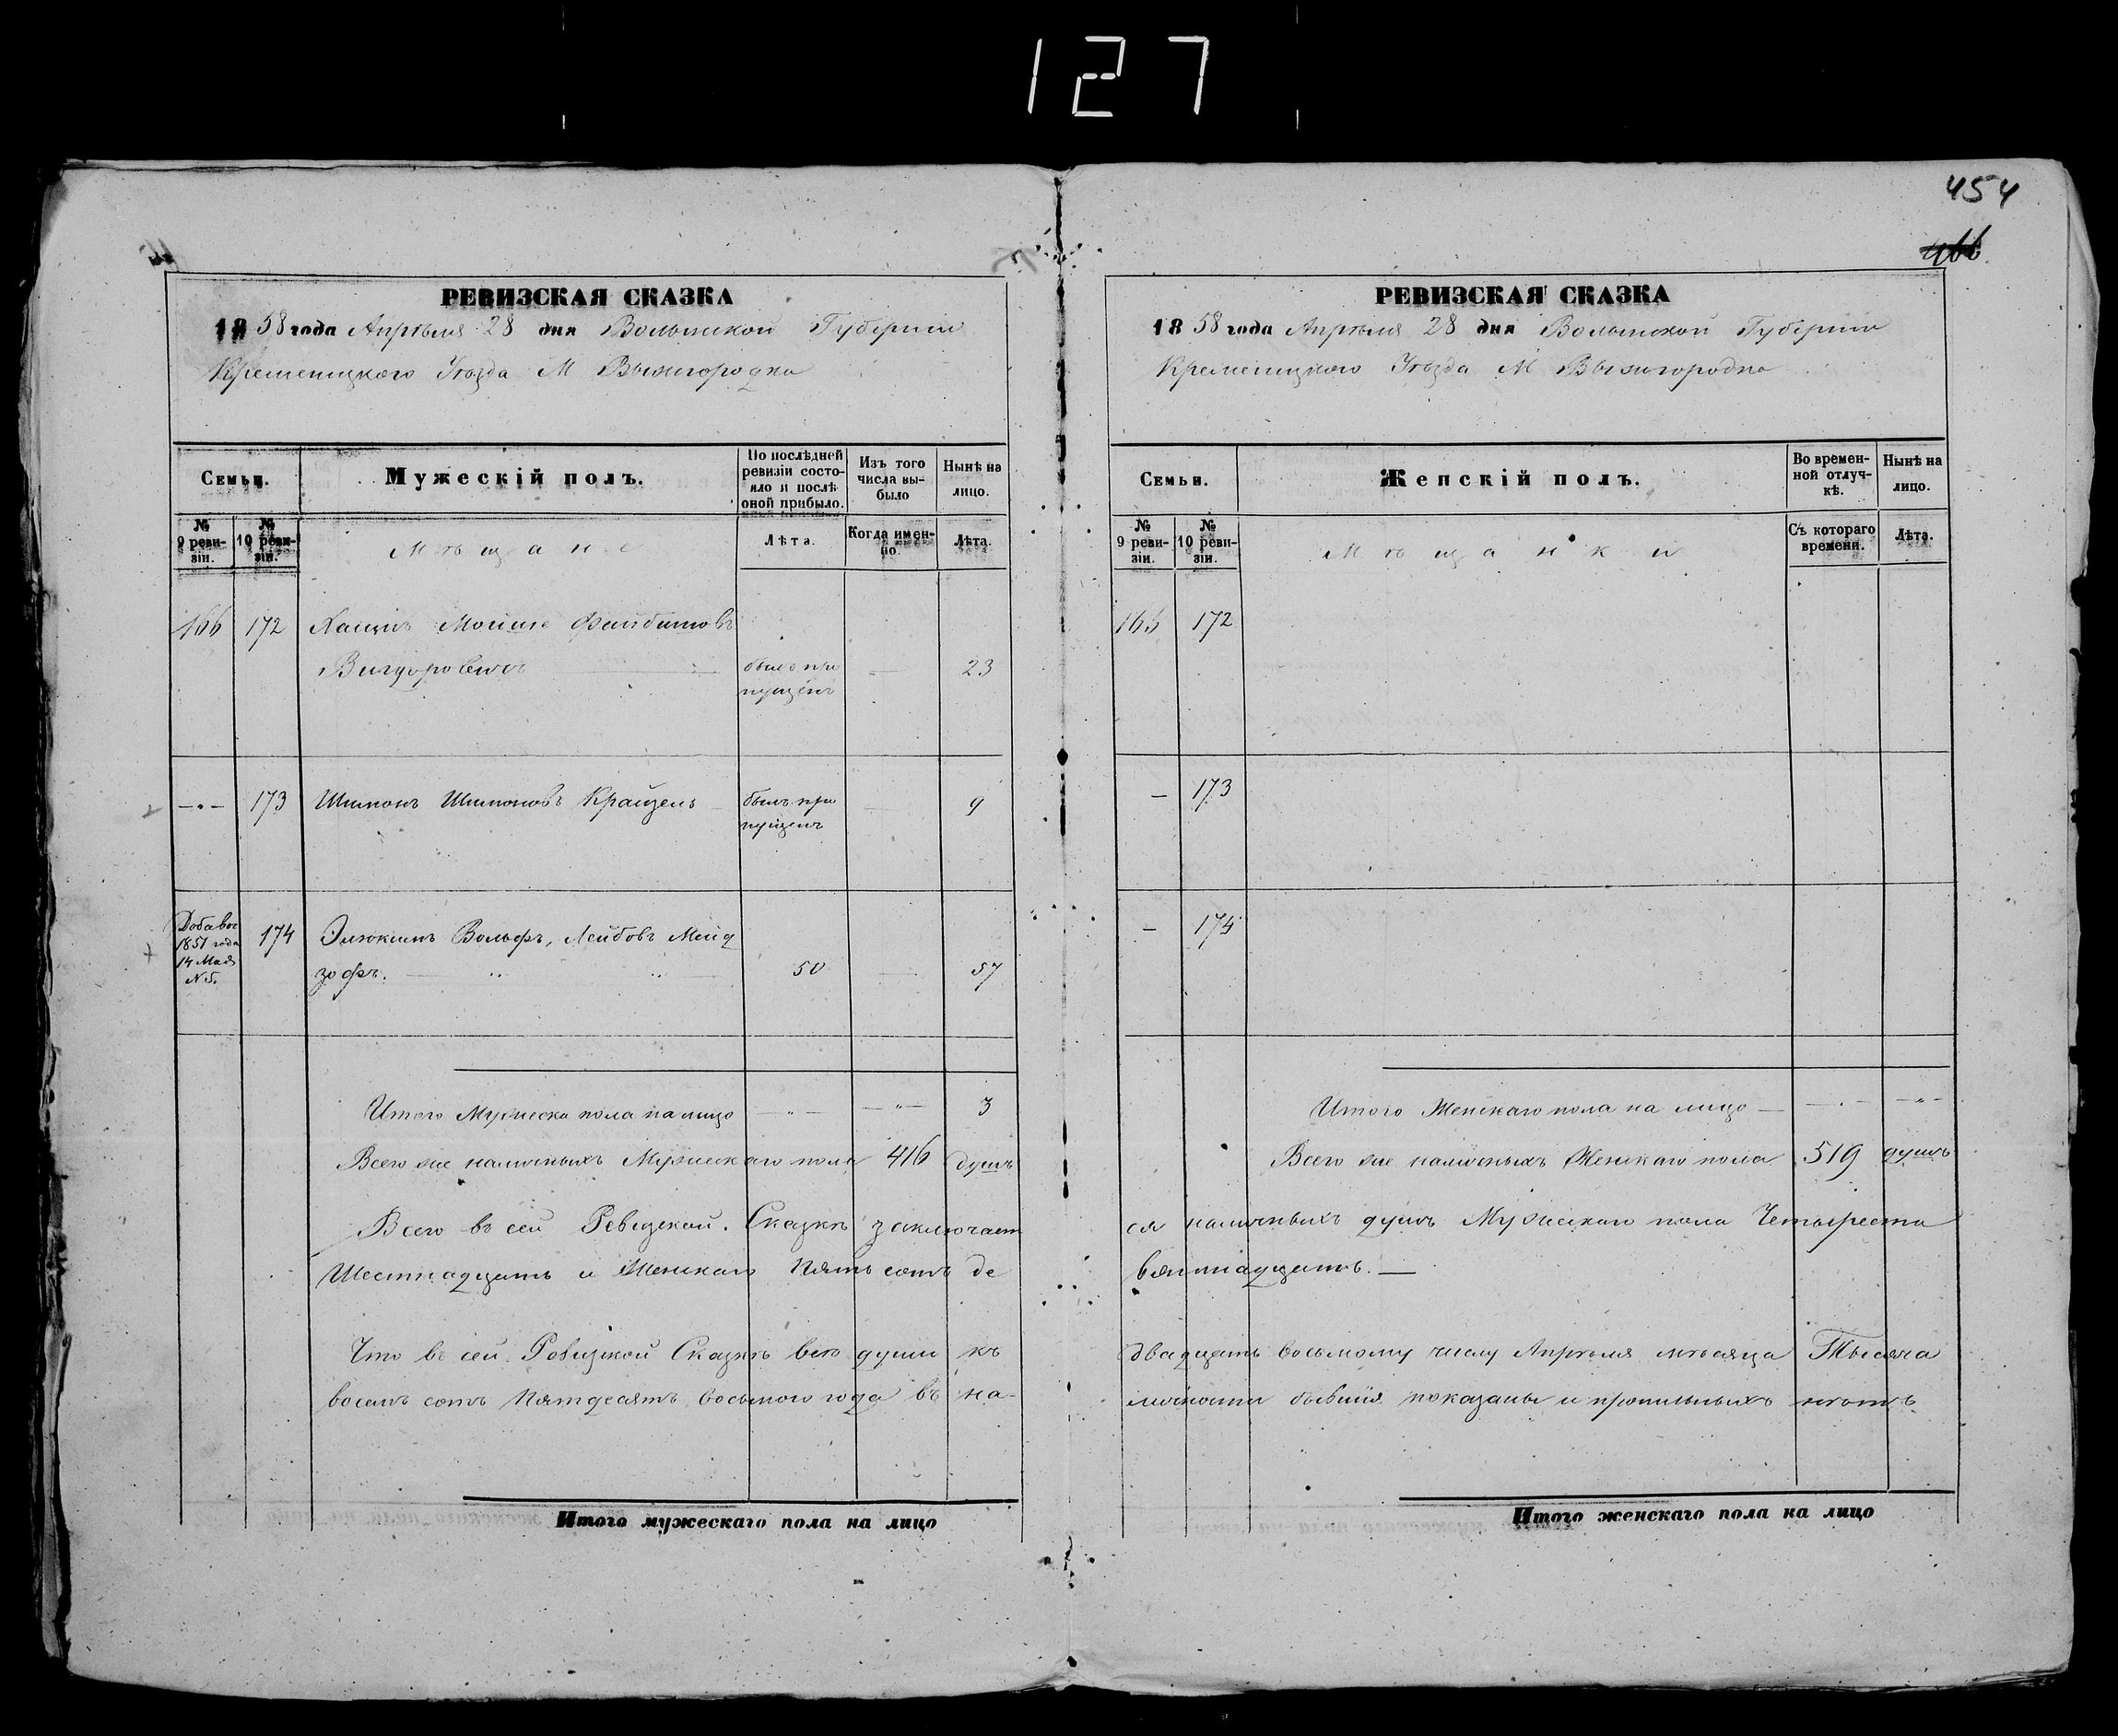 127
454
466
РЕВИЗСКАЯ СКАЗКА
1858 года Апрѣля 28 дня Волынской Губерніи
Кременецкого Уѣзда М Вышгородка
Семьи.
Мужескій полъ.
По послѣдней ревизіи состояло и послѣ оной прибыло.
Изъ того числа выбыло
Нынѣ на лицо.
№ 9 ревизіи.
№ 10 ревизіи.
Мѣщане
Лѣта.
Когда именно.
Лѣта.
166 172 Мошко Файбишовъ
Вигдоровичъ былъ пропущенъ — 23
— 173 Шимонъ Шимоновъ Крайзель былъ пропущенъ — 9
Добавоч 1851 года 14 Мая N 5. 174 Вольфъ, Лейбовъ Мейд
зофъ. 50 — 57
Итого Мужеска пола на лицо — — 3
Всего же наличныхъ Мужескаго пола 416 душъ
Всего въ сей Ревизской Сказкѣ заключает
Шестнадцать и Женскаго Пять сотъ де
Что въ сей Ревизской Сказкѣ всѣ души къ
восемь сотъ Пятдесятъ восьмого года въ на-
Итого мужескаго пола на лицо
РЕВИЗСКАЯ СКАЗКА
1858 года Апрѣля 28 дня Волынской Губерніи
Кременецкого Уѣзда М Вышгородка
Семьи.
Женскій полъ.
Во временной отлучкѣ.
Нынѣ на лицо.
№ 9 ревизіи.
№ 10 ревизіи.
Мѣщанки
Съ котораго времени.
Лѣта.
166 172
— 173
— 174
Итого Женскаго пола на лицо — — —
Всего же наличныхъ Женскаго пола 519 душъ
ся наличныхъ душъ Мужескаго пола Четыреста
вятнадцать. —
двадцать восьмому числу Апрѣля мѣсяца Тысяча
личности бывшія показаны и прописныхъ нѣтъ
Итого женскаго пола на лицо